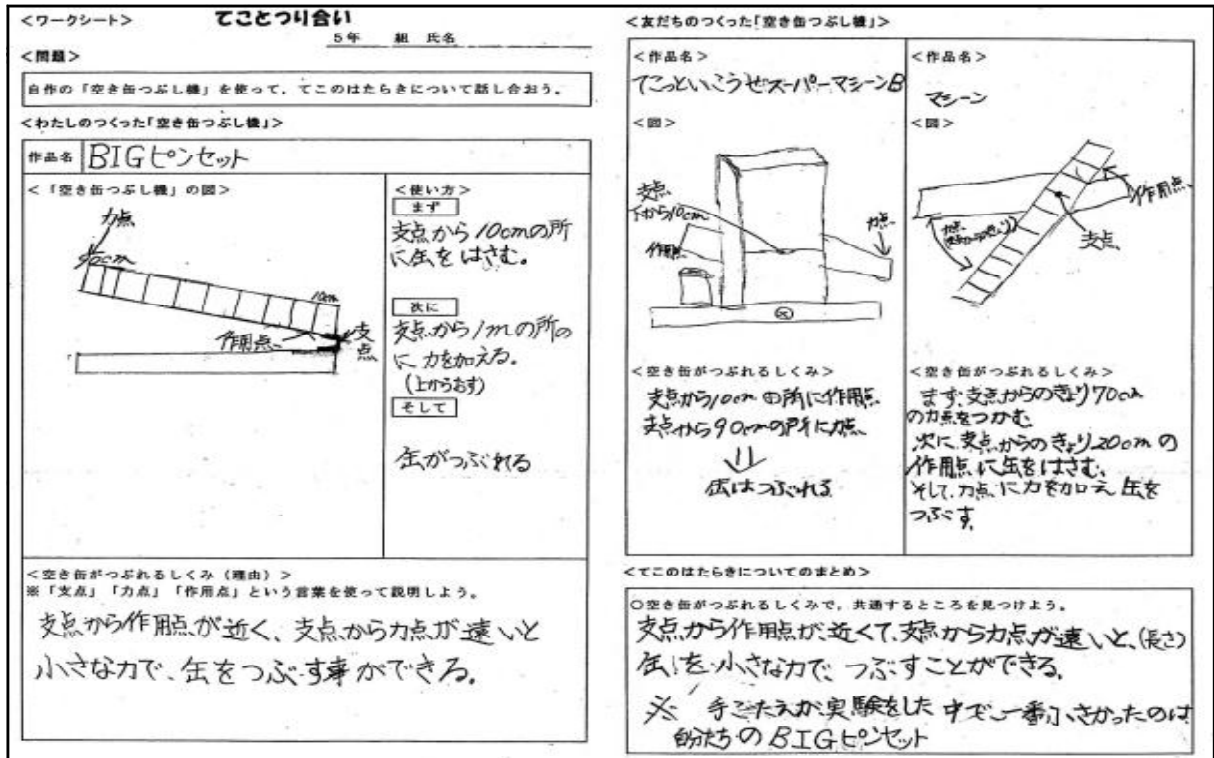 <ワークシート> てことつり合い
5年 組 氏名
<問題>
自作の「空き缶つぶし機」を使って，てこのはたらきについて話し合おう。
<わたしのつくった「空き缶つぶし機」>
作品名 BIGピンセット
<「空き缶つぶし機」の図>
力点
90cm
10cm
作用点
支点
<使い方>
まず
支点から10cmの所
に缶をはさむ。
次に
支点から1mの所の
に力を加える。
(上からおす)
そして
缶がつぶれる
<空き缶がつぶれるしくみ（理由）>
※「支点」「力点」「作用点」という言葉を使って説明しよう。
支点から作用点が近く、支点から力点が遠いと
小さな力で、缶をつぶす事ができる。
<友だちのつくった「空き缶つぶし機」>
<作品名>
てこっといこうぜスーパーマシーンB
<図>
支点
下から10cm
作用点
力点
<空き缶がつぶれるしくみ>
支点から10cmの所に作用点
支点から90cmの所に力点
缶はつぶれる
<作品名>
マシーン
<図>
作用点
支点
力点
<空き缶がつぶれるしくみ>
まず、支点からのきょり70cm
の力点をつかむ
次に、支点からのきょり20cmの
作用点に缶をはさむ。
そして、力点に力を加え缶を
つぶす。
<てこのはたらきについてのまとめ>
○空き缶がつぶれるしくみで，共通するところを見つけよう。
支点から作用点が、近くて、支点から力点が遠いと、(長さ)
缶を小さな力で、つぶすことができる。
※ 手ごたえが、実験をした中で、一番小さかったのは
自分たちのBIGピンセット